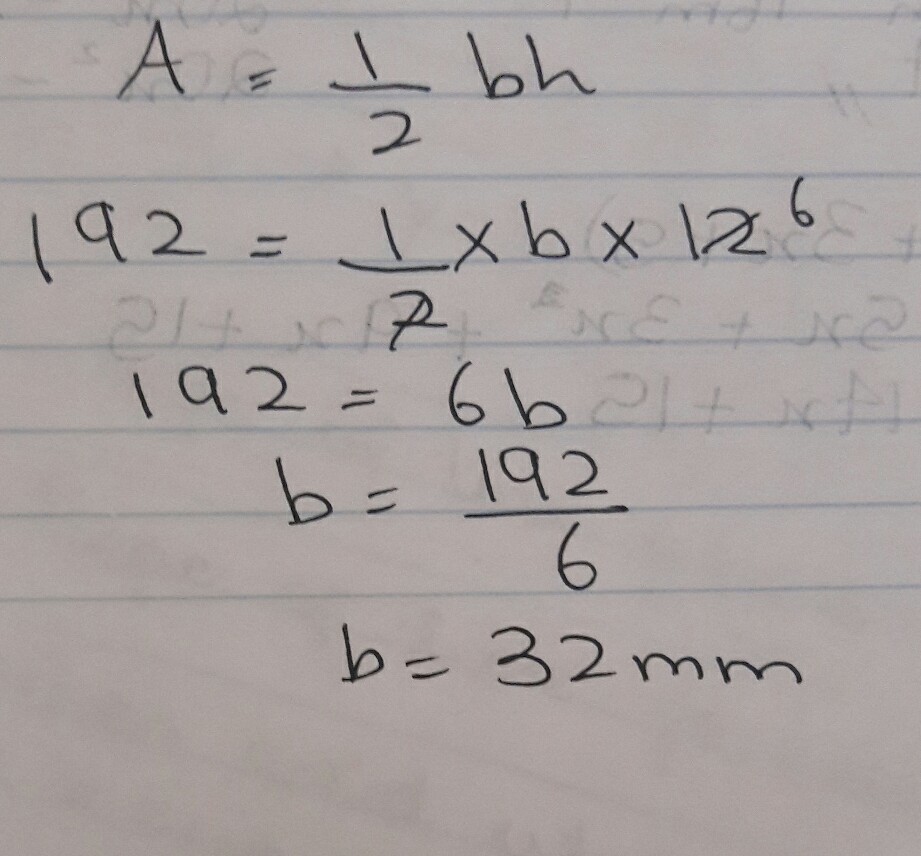 A = 1/2 bh
192 = 1/2 x b x 12 6
192 = 6b
b = 192/6
b = 32mm